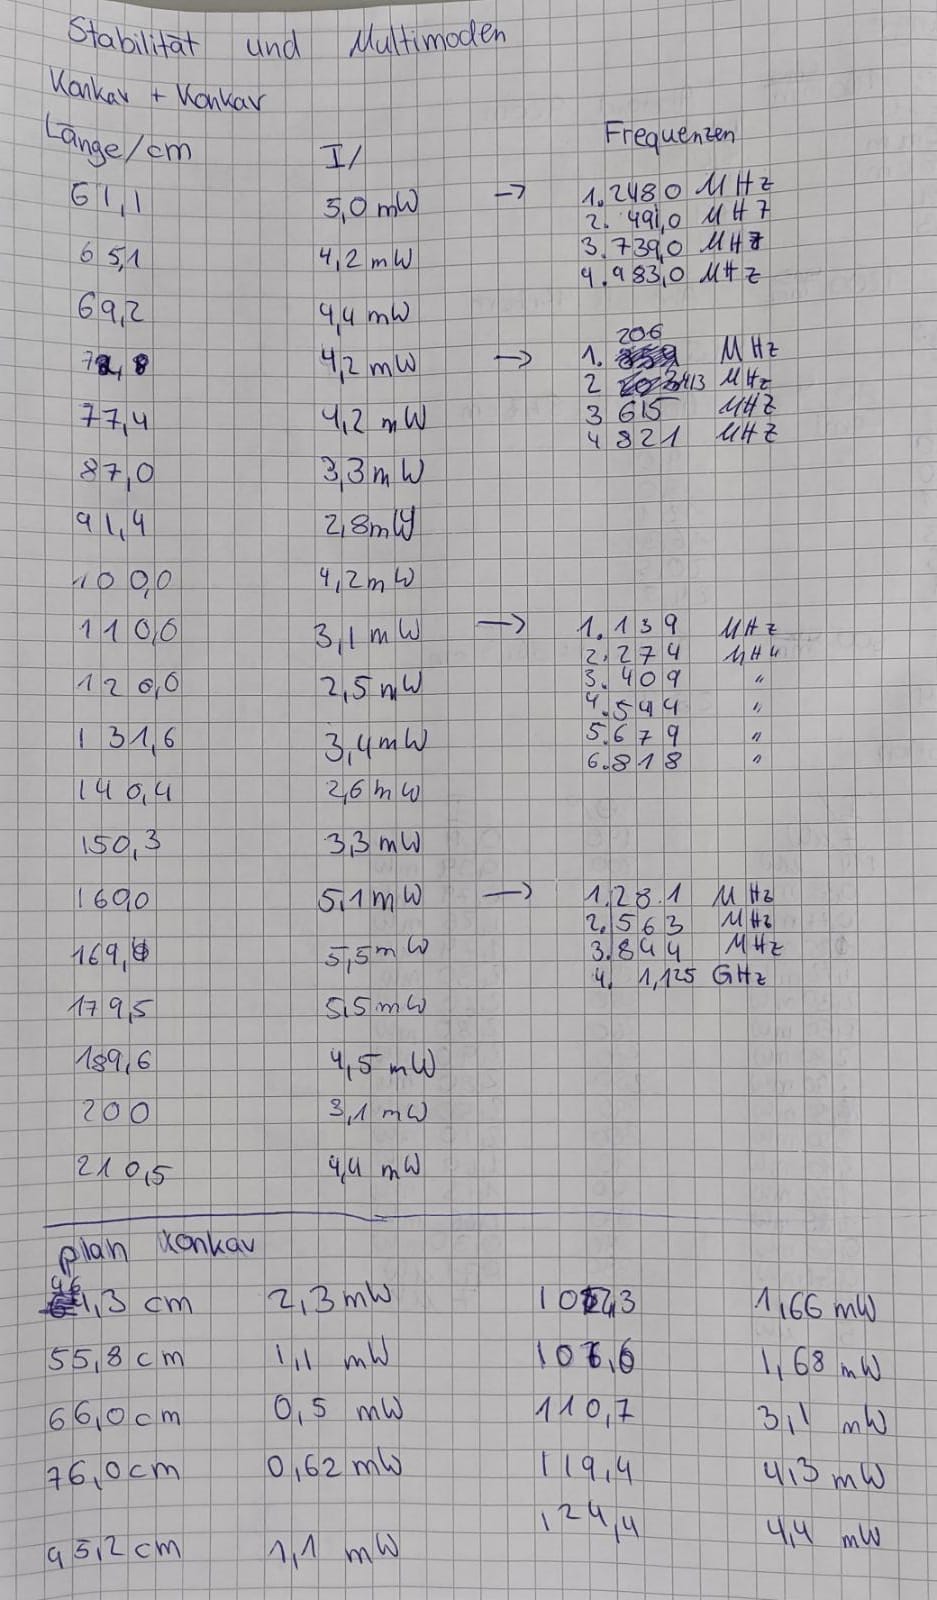 Stabilität und Multimoden
Konkav + Konkav
Länge/cm I/ Frequenzen
61,1 5,0 mW → 1. 248,0 MHz
2. 491,0 MHz
65,1 4,2 mW 3. 739,0 MHz
4. 983,0 MHz
69,2 4,4 mW
4,2 mW → 1. 206 MHz
2 413 MHz
77,4 4,2 mW 3 615 MHz
4 821 MHz
87,0 3,3 mW
91,4 2,8 mW
100,0 4,2 mW
110,0 3,1 mW → 1. 139 MHz
2. 274 MHz
120,0 2,5 mW 3. 409 "
4. 544 "
131,6 3,4 mW 5. 679 "
6. 818 "
140,4 2,6 mW
150,3 3,3 mW
160,0 5,1 mW → 1. 281 MHz
2. 563 MHz
169, 5,5 mW 3. 844 MHz
4. 1,125 GHz
179,5 5,5 mW
189,6 4,5 mW
200 3,1 mW
210,5 4,4 mW
plan konkav
46,3 cm 2,3 mW 102,3 1,66 mW
55,8 cm 1,1 mW 106,6 1,68 mW
66,0 cm 0,5 mW 110,7 3,1 mW
76,0 cm 0,62 mW 119,4 4,3 mW
95,2 cm 1,1 mW 124,4 4,4 mW